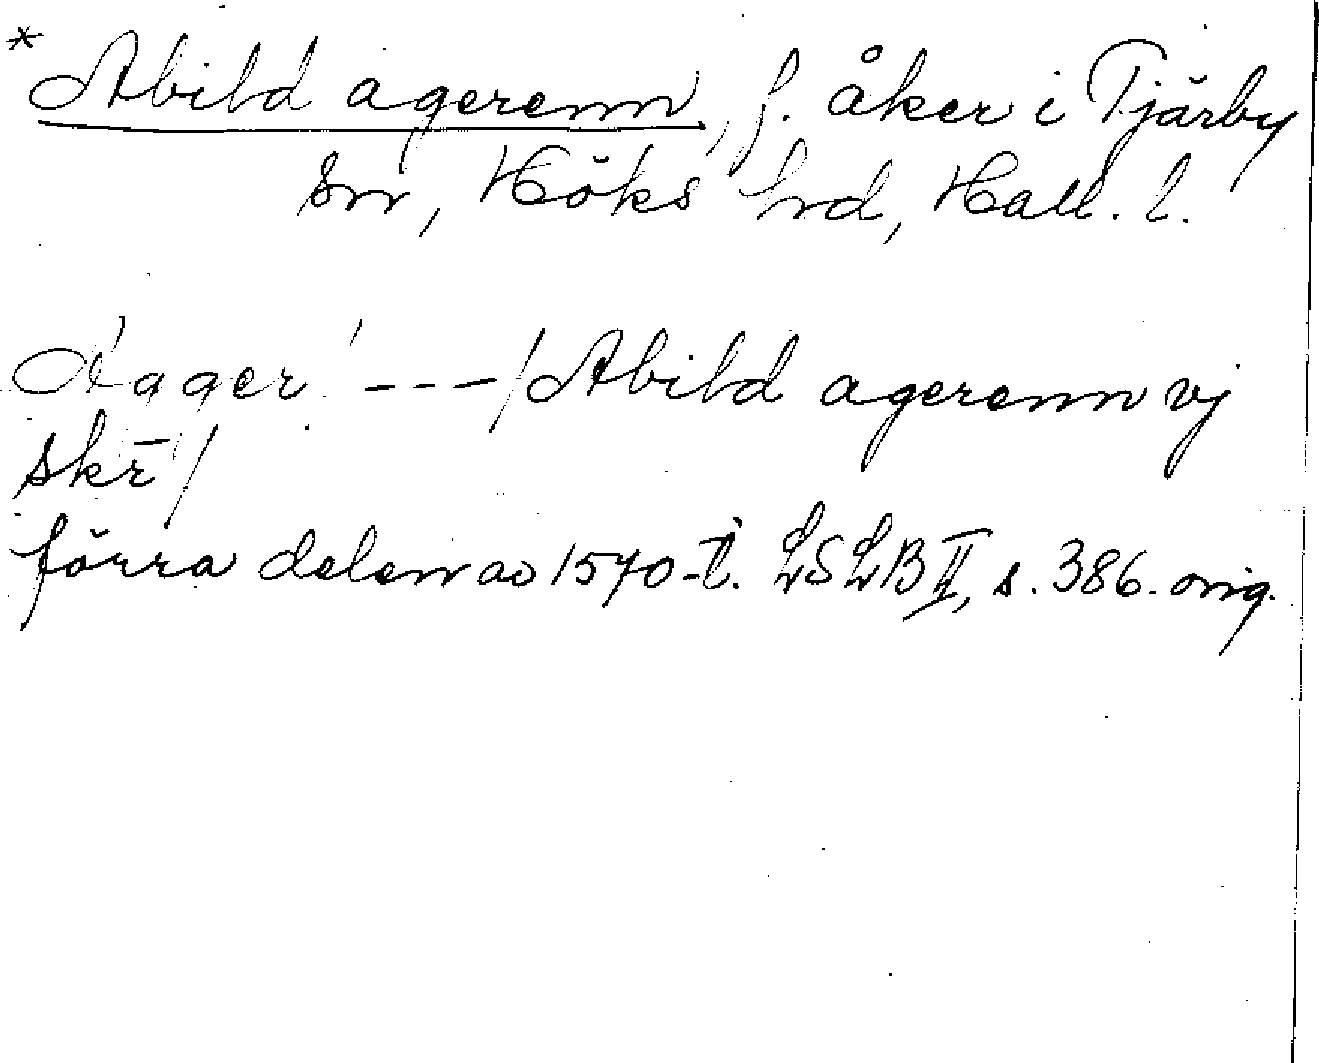 * Abild agerenn, f. åker i Tjärby
sn, Höks hd, Hall. l.
ager --- / Abild agerenn vj
skr /
förra delen av 1570-t. LSLB II, s. 386. orig.